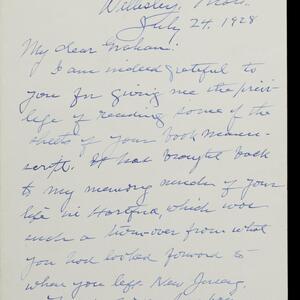 Wellesley, Mass.
July 24, 1928
My dear Graham:
I am indeed grateful to
you for giving me the privi-
lege of reading some of the
sheets of your book manu-
script. It has brought back
to my memory much of your
life in Hartford, which was
such a turn-over from what
you had looked forward to
when you left New Jersey.